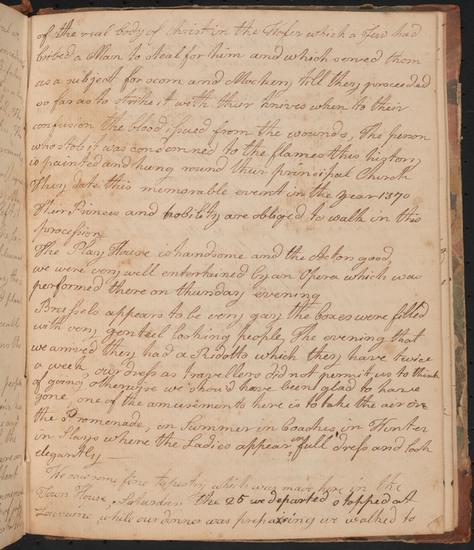 of the real body of Christ in the Wafer which a Jew had
bribed a Man to steal for him and which served them
as a subject for scorn and Mockery till they proceeded
so far as to strike it with their knives when to their
confusion the blood issued from the wounds, The person
who stole it was condemned to the flames this history
is painted and hung round their principal Church
They date this memorable event in the Year 1370
Their Princes and Nobility are obliged to walk in this
procession
The Play House is handsome and the Actors good,
we were very well entertained by an Opera which was
performed there on thursday evening
Brussels appears to be very gay the boxes were filled
with very genteel looking people, The evening that
we arrived they had a Ridotto which they have twice
a week, our dress as travellers did not permit us to think
of going otherwise we should have been glad to have
gone, one of the amusements here is to take the air on
the Promenade, in Summer in Coaches, in Winter
in Slays where the Ladies appear in full dress and look
elegantly —
We saw some fine tapestry which was made here in the
Town House, Saturday the 25 we departed & stopped at
Louvaine, while our dinner was preparing we walked to